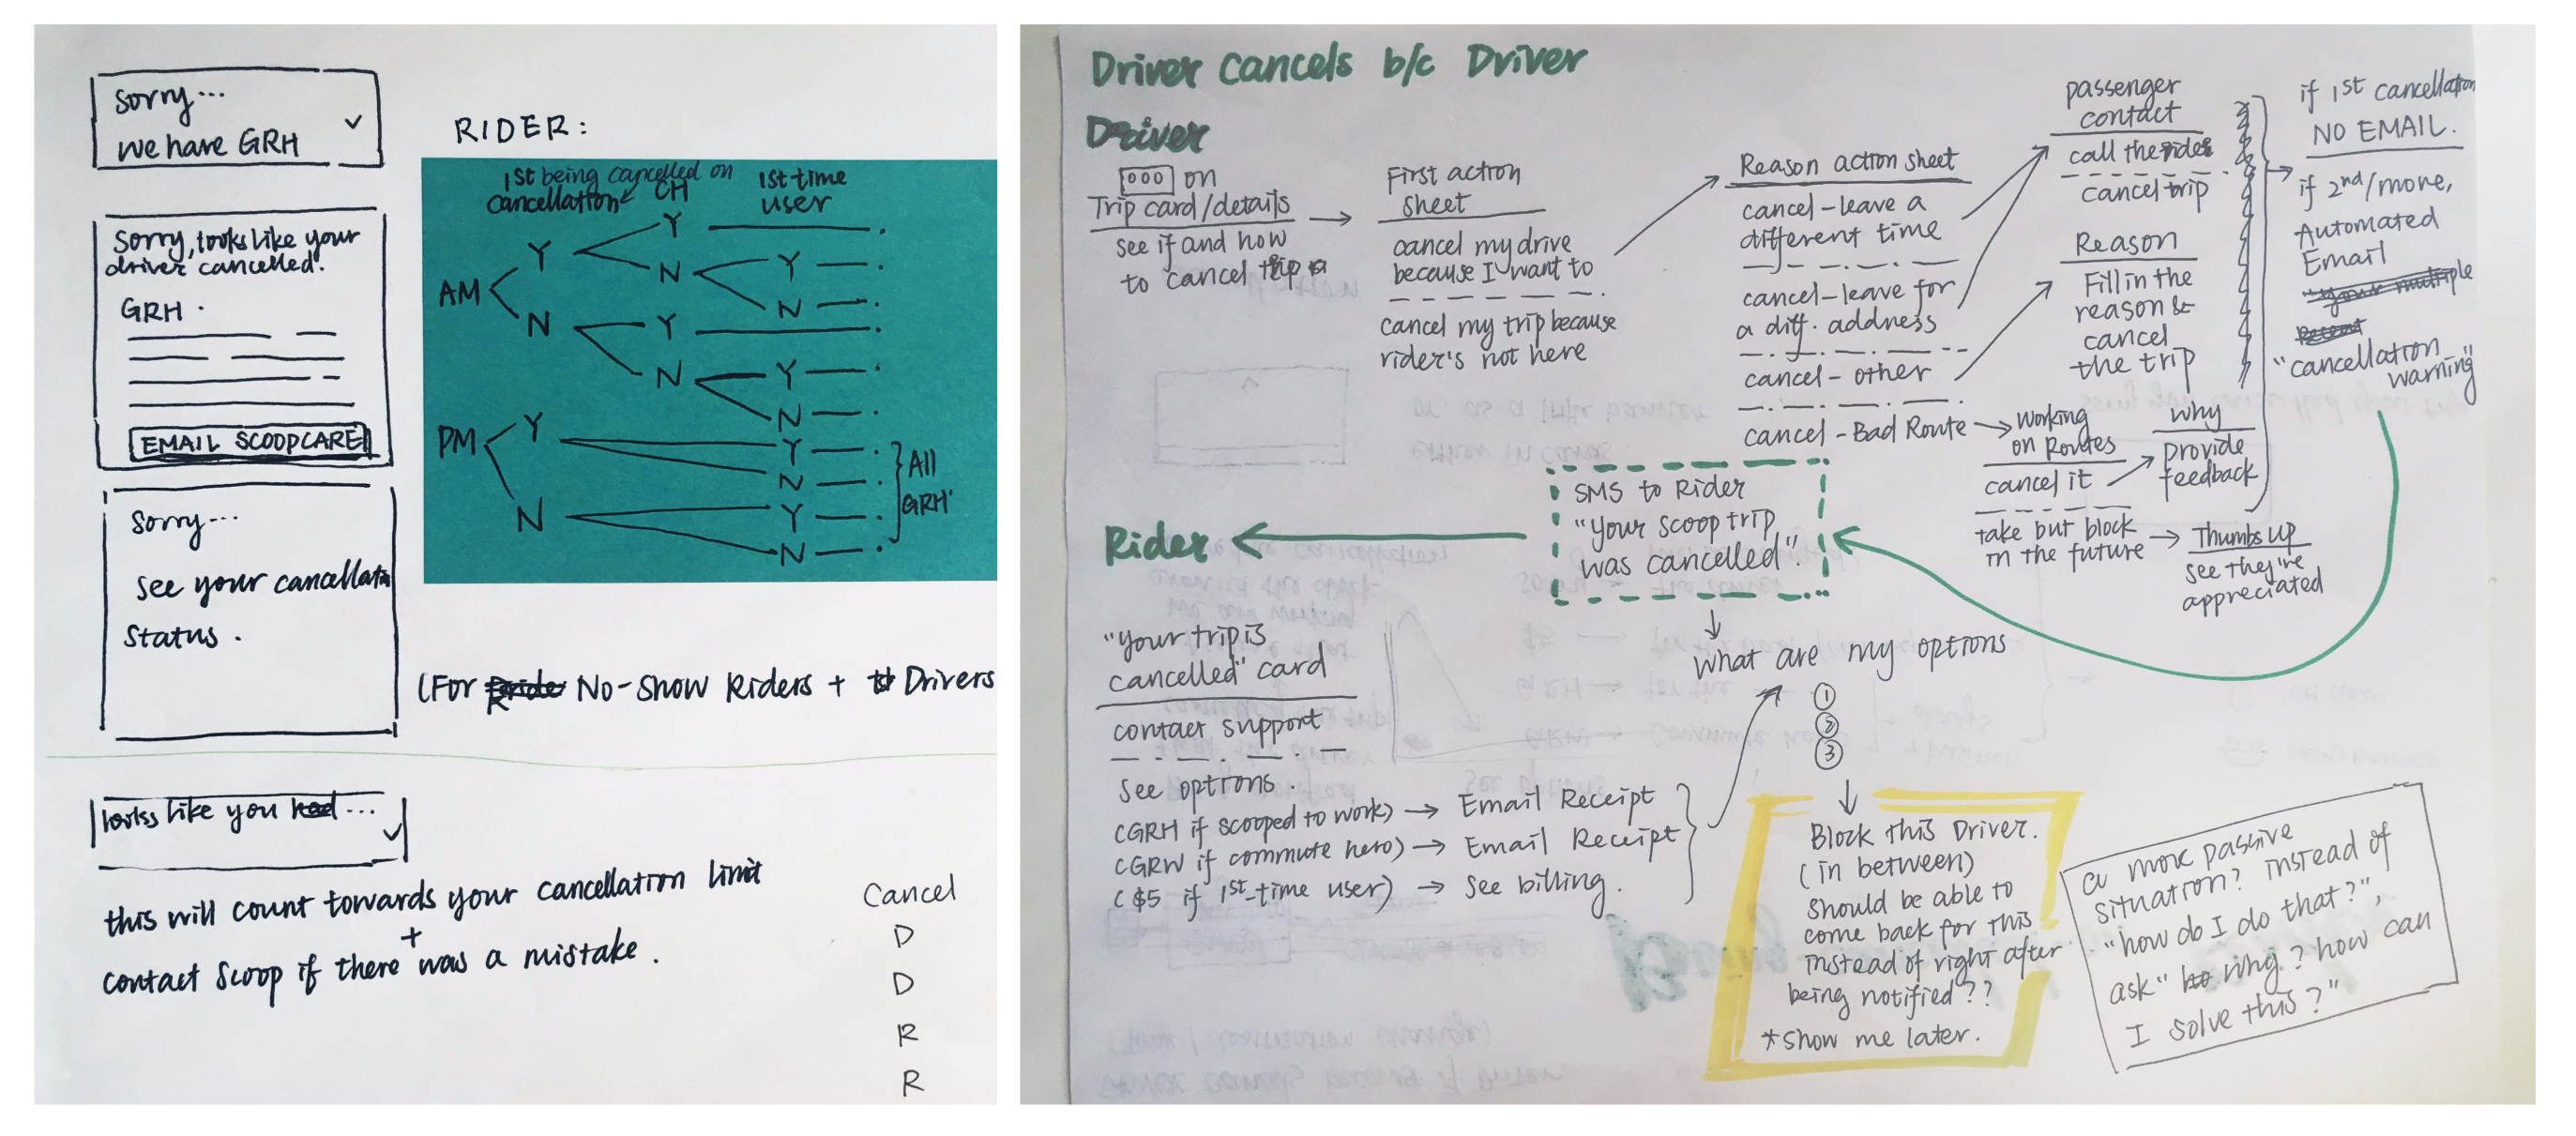 Sorry...
we have GRH
Sorry, looks like your
driver cancelled.
GRH.
EMAIL SCOOPCARE
Sorry...
see your cancellatn
status.
RIDER:
1st being cancelled on
cancellation
CH
1st time
user
AM
Y
Y
N
Y
N
N
Y
N
Y
N
PM
Y
Y
N
N
Y
N
All
GRH
(For No-show Riders + Drivers
looks like you had...
this will count towards your cancellation limit
+
contact Scoop if there was a mistake.
Cancel
D
D
R
R
Driver Cancels b/c Driver
Driver
ooo on
Trip card/details
see if and how
to cancel trip
First action
sheet
cancel my drive
because I want to
cancel my trip because
rider's not here
Reason action sheet
cancel-leave a
different time
cancel-leave for
a diff. address
cancel-other
cancel-Bad Route
passenger
contact
call the rider
cancel trip
Reason
Fill in the
reason &
cancel
the trip
Working
on Routes
cancel it
take but block
in the future
why
provide
feedback
Thumbs up
see they're
appreciated
if 1st cancellation
NO EMAIL.
if 2nd/more,
Automated
Email
"your multiple
Recent
"cancellation
warning"
SMS to Rider
"Your scoop trip
was cancelled".
Rider
"your trip is
cancelled" card
contact support
see options.
(GRH if scooped to work) → Email Receipt
(GRW if commute hero) → Email Receipt
($5 if 1st-time user) → see billing.
what are my options
①
②
③
Block this Driver.
(in between)
should be able to
come back for this
instead of right after
being notified??
*show me later.
a more passive
situation? instead of
"how do I do that?",
ask "why? how can
I solve this?"